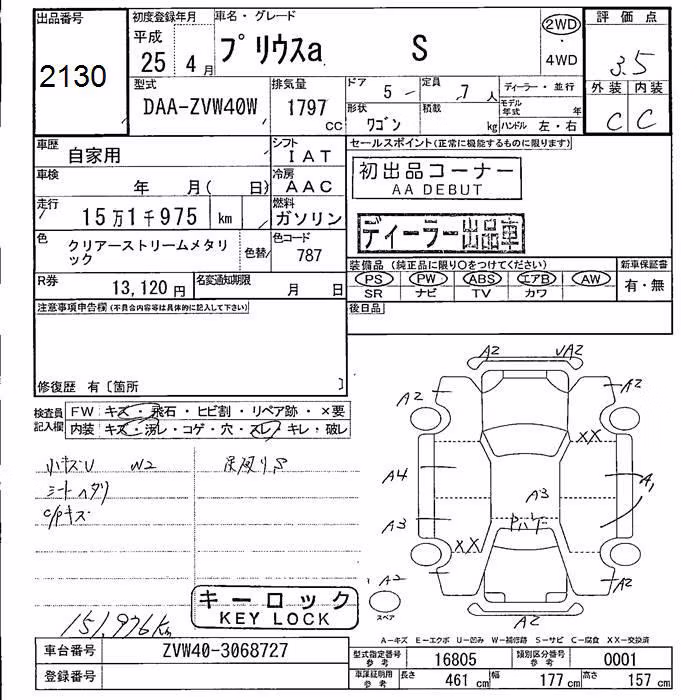 出品番号
2130
初度登録年月
平成
25年 4月
車名・グレード
プリウスa S
2WD
・
4WD
評価点
3.5
型式
DAA-ZVW40W
排気量
1797
cc
ドア
5
定員
7人
ディーラー・並行
外装 内装
C C
形状
ワゴン
積載
kg
モデル
年式
年
ハンドル 左・右
車歴
自家用
シフト
IAT
セールスポイント(正常に機能するものに限ります)
車検
年 月( 日)
冷房
AAC
初出品コーナー
AA DEBUT
走行
15万1千975 km
燃料
ガソリン
ディーラー出品車
色
クリアーストリームメタリ
ック
色替
色コード
787
装備品(純正品に限り○をつけてください)
新車保証書
PS PW ABS エアB AW
有・無
SR ナビ TV カワ
R券
13,120円
名変通知期限
月 日
後日品
注意事項申告欄(不具合内容等は具体的に記入して下さい)
修復歴 有〔箇所 〕
検査員
記入欄
FW キズ・飛石・ヒビ割・リペア跡・×要
内装 キズ・汚レ・コゲ・穴・スレ・キレ・破レ
小キズU W2
シートヘタリ
C/Pキズ
A2 VA2
A2 A2
XX
A4 A1
A3
A3
XX
A2 A2
A2
スペア
キーロック
KEY LOCK
151,976km
A-キズ E-エクボ U-凹み W-補修跡 S-サビ C-腐食 XX-交換済
車台番号
ZVW40-3068727
登録番号
型式指定番号
参考
16805
類別区分番号
参考
0001
車庫証明用
参考
長さ
461cm
幅
177cm
高さ
157cm